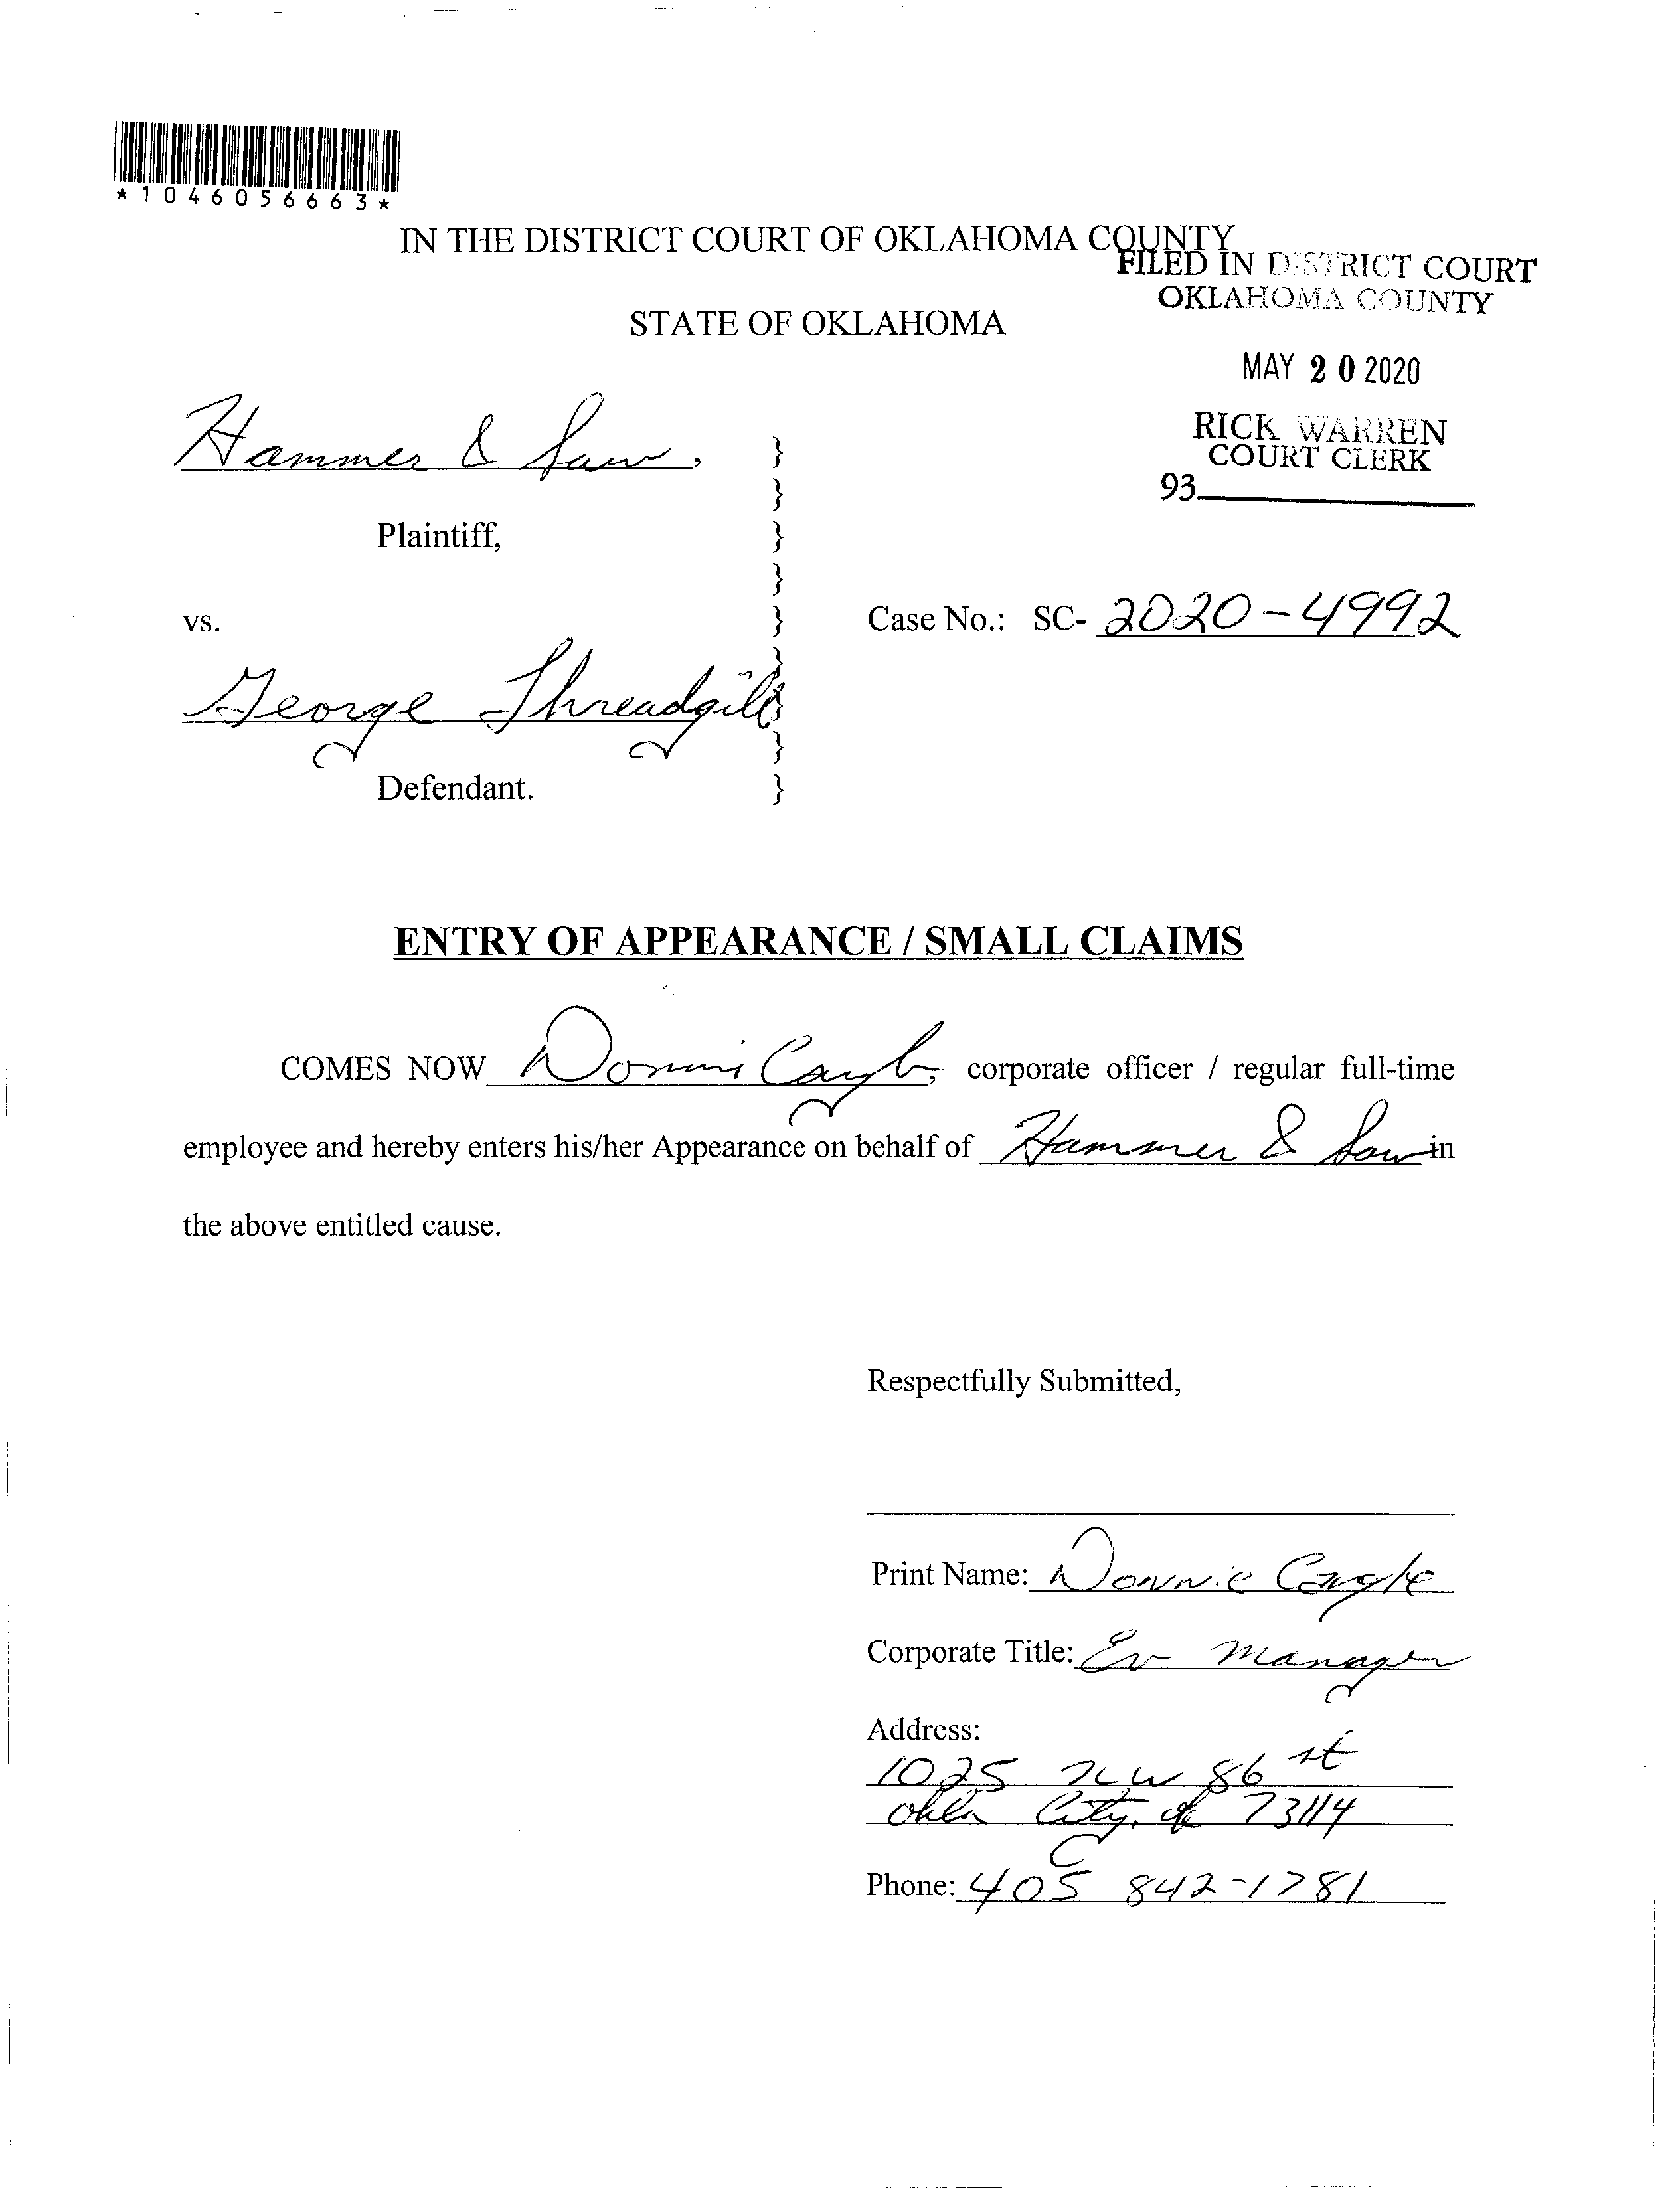 *1046056663*
IN THE DISTRICT COURT OF OKLAHOMA COUNTY
FILED IN DISTRICT COURT
OKLAHOMA COUNTY
STATE OF OKLAHOMA
MAY 20 2020
RICK WARREN
COURT CLERK
93
Hammer & Saw,
}
}
Plaintiff, }
}
vs. }
Case No.: SC- 2020-4992
}
George Threadgill
}
}
Defendant. }
ENTRY OF APPEARANCE / SMALL CLAIMS
COMES NOW Donnie Cagle, corporate officer / regular full-time
employee and hereby enters his/her Appearance on behalf of Hammer & Saw in
the above entitled cause.
Respectfully Submitted,
Print Name: Donnie Cagle
Corporate Title: Manager
Address:
1025 NW 86 st
Okla City, ok 73114
Phone: 405 842-1781